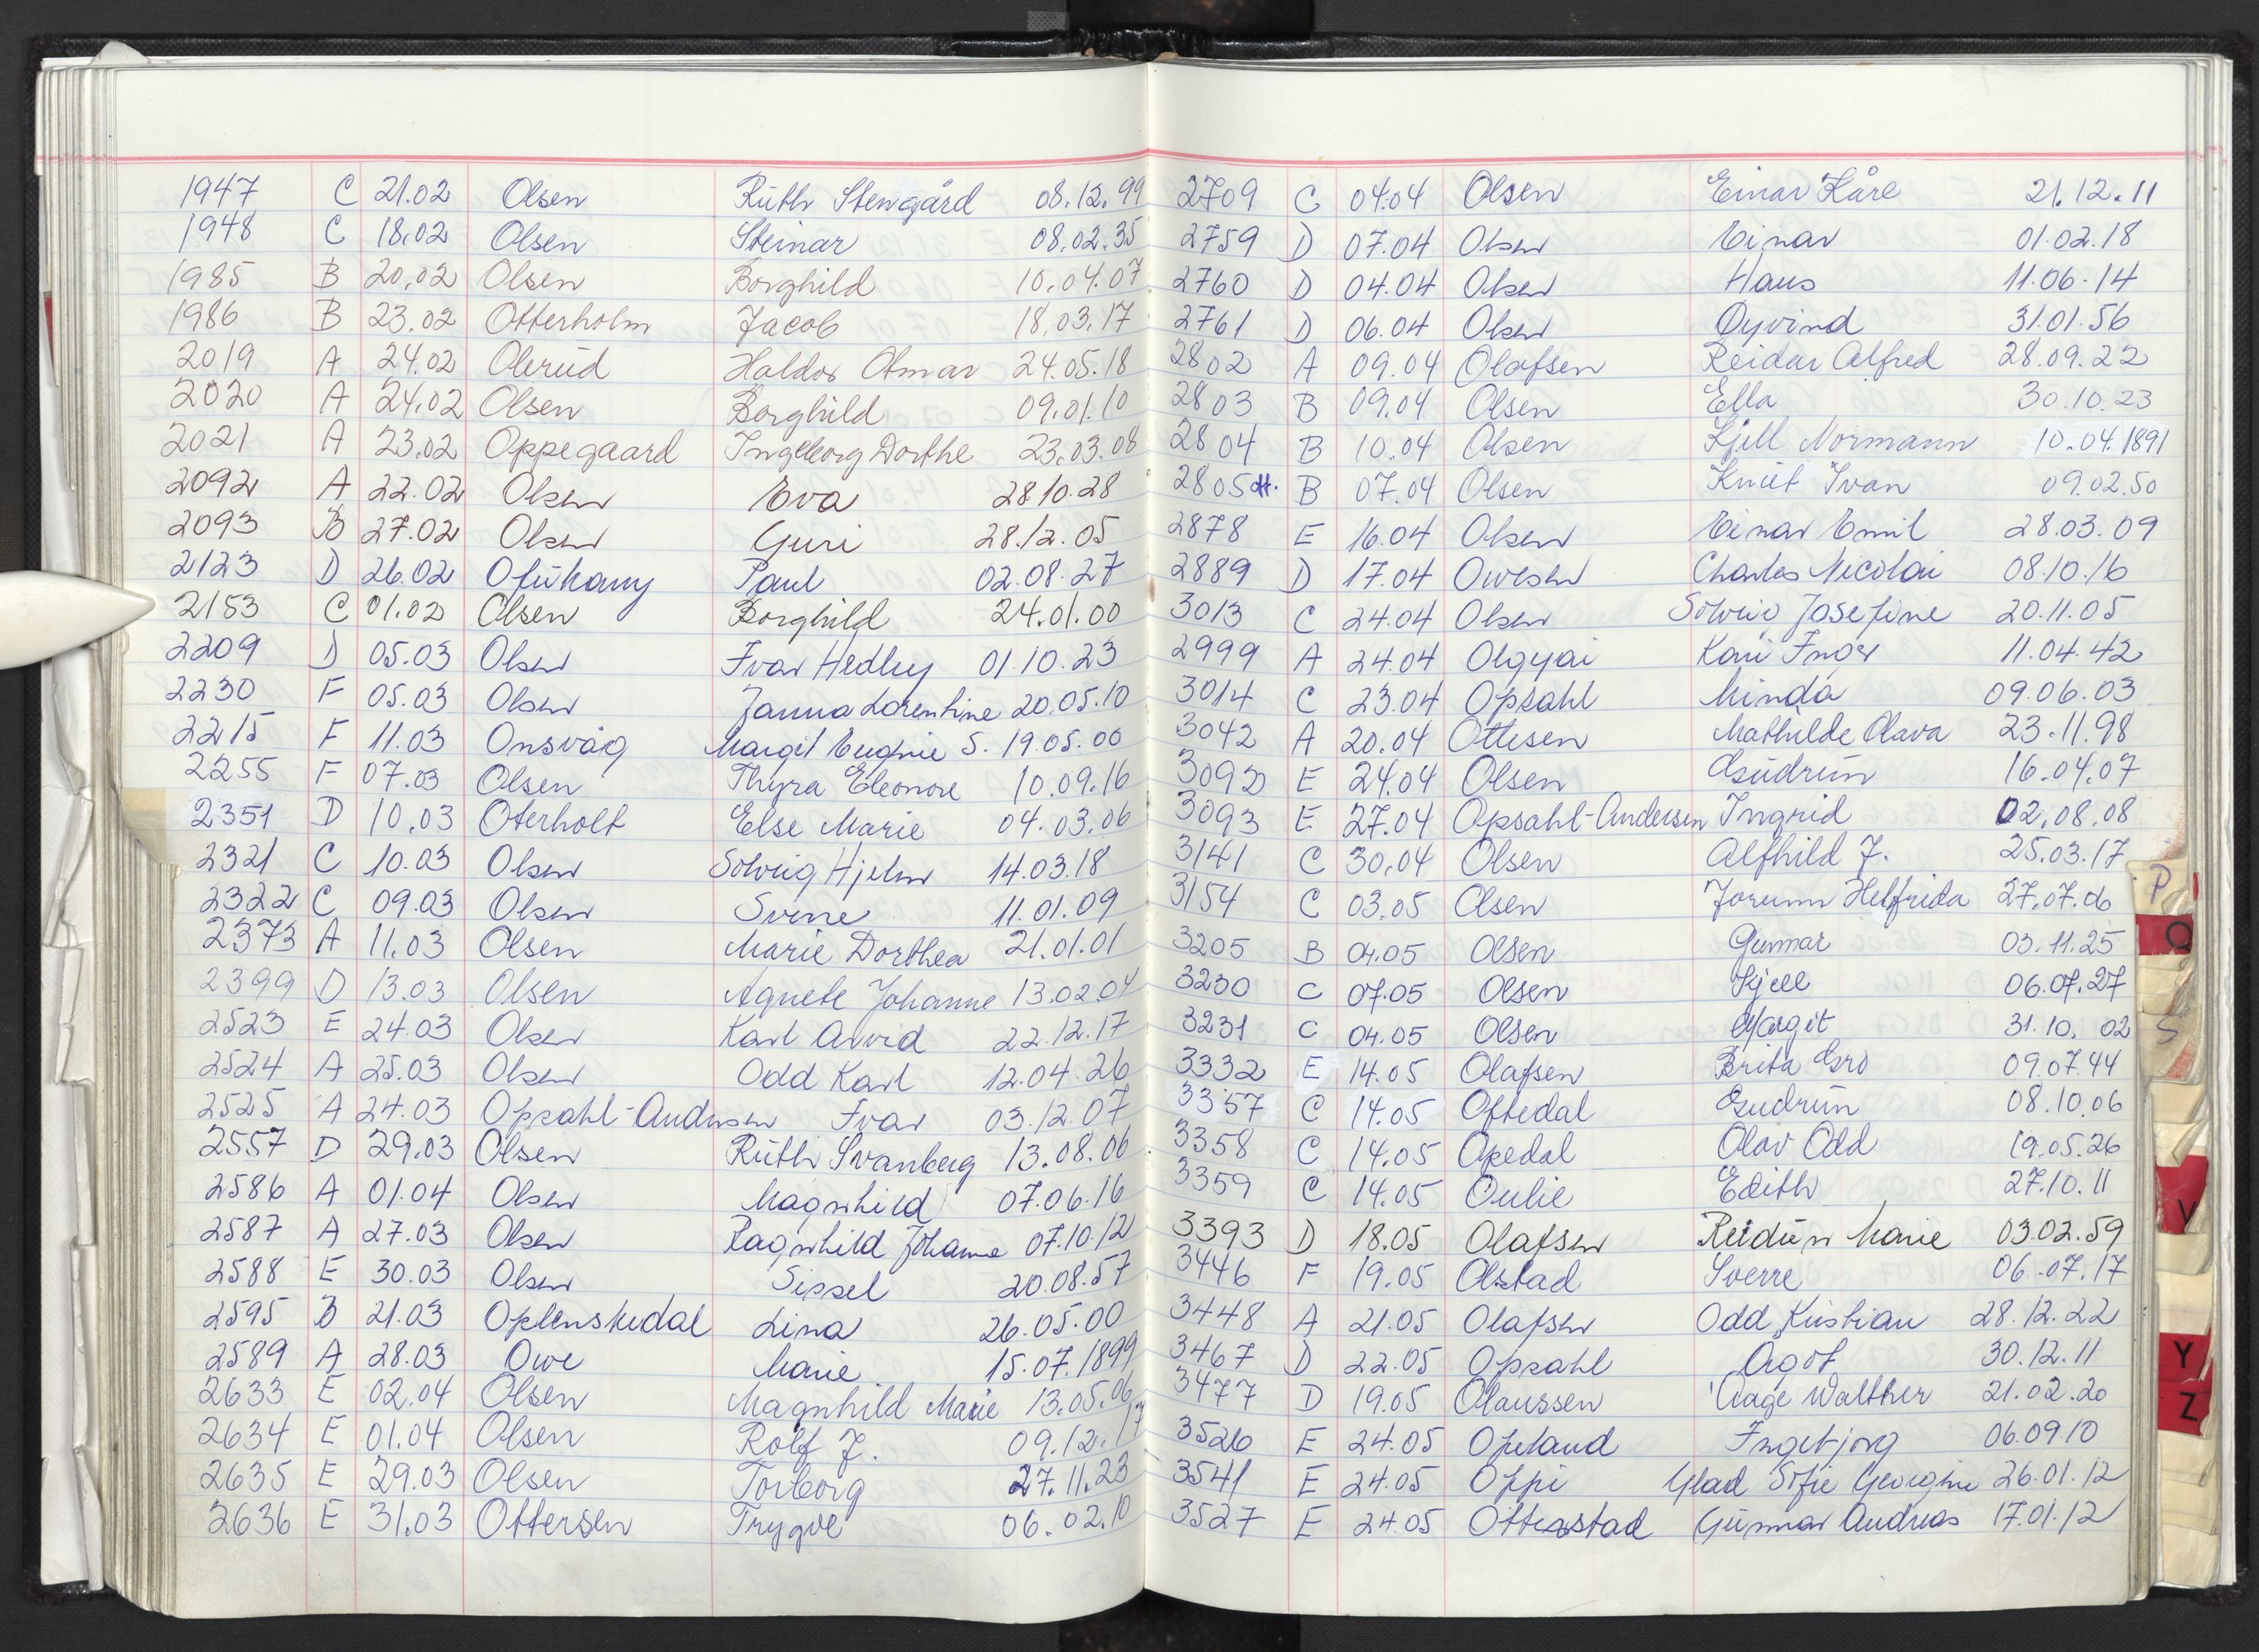 1947 C 21.02 Olsen Ruth Stengård 08.12.99
1948 C 18.02 Olsen Steinar 08.02.35
1985 B 20.02 Olsen Borghild 10.04.07
1986 B 23.02 Otterholm Jacob 18.03.17
2019 A 24.02 Olerud Haldor Omar 24.05.18
2020 A 24.02 Olsen Borghild 09.01.10
2021 A 23.02 Oppegaard Ingeborg Dorthe 23.03.08
2092 A 22.02 Olsen Eva 28.10.28
2093 B 27.02 Olsen Guri 28.12.05
2123 D 26.02 Paul 02.08.27
2153 C 01.02 Olsen Borghild 24.01.00
2209 D 05.03 Olsen Ivar Hedley 01.10.23
2230 F 05.03 Olsen Janna Lorentine 20.05.10
2215 F 11.03 Onsvåg Margit Eugenie S. 19.05.00
2255 F 07.03 Olsen Thyra Eleonore 10.09.16
2351 D 10.03 Oterholt Else Marie 04.03.06
2321 C 10.03 Olsen Solveig Hjelm 14.03.18
2322 C 09.03 Olsen Svene 11.01.09
2373 A 11.03 Olsen Marie Dorthea 21.01.01
2399 D 13.03 Olsen Agnete Johanne 13.02.04
2523 E 24.03 Olsen Karl Arvid 22.12.17
2524 A 25.03 Olsen Odd Karl 12.04.26
2525 A 24.03 Opsahl-Andersen Ivar 03.12.07
2557 D 29.03 Olsen Ruth Svanberg 13.08.06
2586 A 01.04 Olsen Magnhild 07.06.16
2587 A 27.03 Olsen Ragnhild Johanne 07.10.12
2588 E 30.03 Olsen Sissel 20.08.57
2595 B 21.03 Oplenskedal Lina 26.05.00
2589 A 28.03 Owe Marie 15.07.1899
2633 E 02.04 Olsen Magnhild Marie 13.05.06
2634 E 01.04 Olsen Rolf J. 09.12.17
2635 E 29.03 Olsen Torborg 27.11.23
2636 E 31.03 Ottersen Trygve 06.02.10
2709 C 04.04 Olsen Einar Kåre 21.12.11
2759 D 07.04 Olsen Einar 01.02.18
2760 D 04.04 Olsen Hans 11.06.14
2761 D 06.04 Olsen Øyvind 31.01.56
2802 A 09.04 Olafsen Reidar Alfred 28.09.22
2803 B 09.04 Olsen Ella 30.10.23
2804 B 10.04 Olsen Kjell Normann 10.04.1891
2805 B 07.04 Olsen Knut Ivan 09.02.50
2878 E 16.04 Olsen Einar Emil 28.03.09
2889 D 17.04 Owesen Charles Nicolai 08.10.16
3013 C 24.04 Olsen Solveig Josefine 20.11.05
2999 A 24.04 Olgyai Kari Inger 11.04.42
3014 C 23.04 Opsahl Minda 09.06.03
3042 A 20.04 Ottesen Mathilde Olava 23.11.98
3092 E 24.04 Olsen Gudrun 16.04.07
3093 E 27.04 Opsahl-Andersen Ingrid 02.08.08
3141 C 30.04 Olsen Alfhild J. 25.03.17
3154 C 03.05 Olsen Jorunn Helfrida 27.07.06
3205 B 04.05 Olsen Gunnar 03.11.25
3230 C 07.05 Olsen Kjell 06.07.27
3231 C 04.05 Olsen Margit 31.10.02
3332 E 14.05 Olafsen Brita Gro 09.07.44
3357 C 14.05 Oftedal Gudrun 08.10.06
3358 C 14.05 Opedal Olav Odd 19.05.26
3359 C 14.05 Oulie Edith 27.10.11
3393 D 18.05 Olafsen Reidun Marie 03.02.59
3446 F 19.05 Olstad Sverre 06.07.17
3448 A 21.05 Olafsen Odd Kristian 28.12.22
3467 D 22.05 Opsahl Ågot 30.12.11
3477 D 19.05 Olaussen Aage Walther 21.02.20
3526 E 24.05 Opeland Ingebjørg 06.09.10
3541 E 24.05 Oppi Glad Sofie Georgine 26.01.12
3527 E 24.05 Otterstad Gunnar Andreas 17.01.12
P
Q
S
V
Y
Z